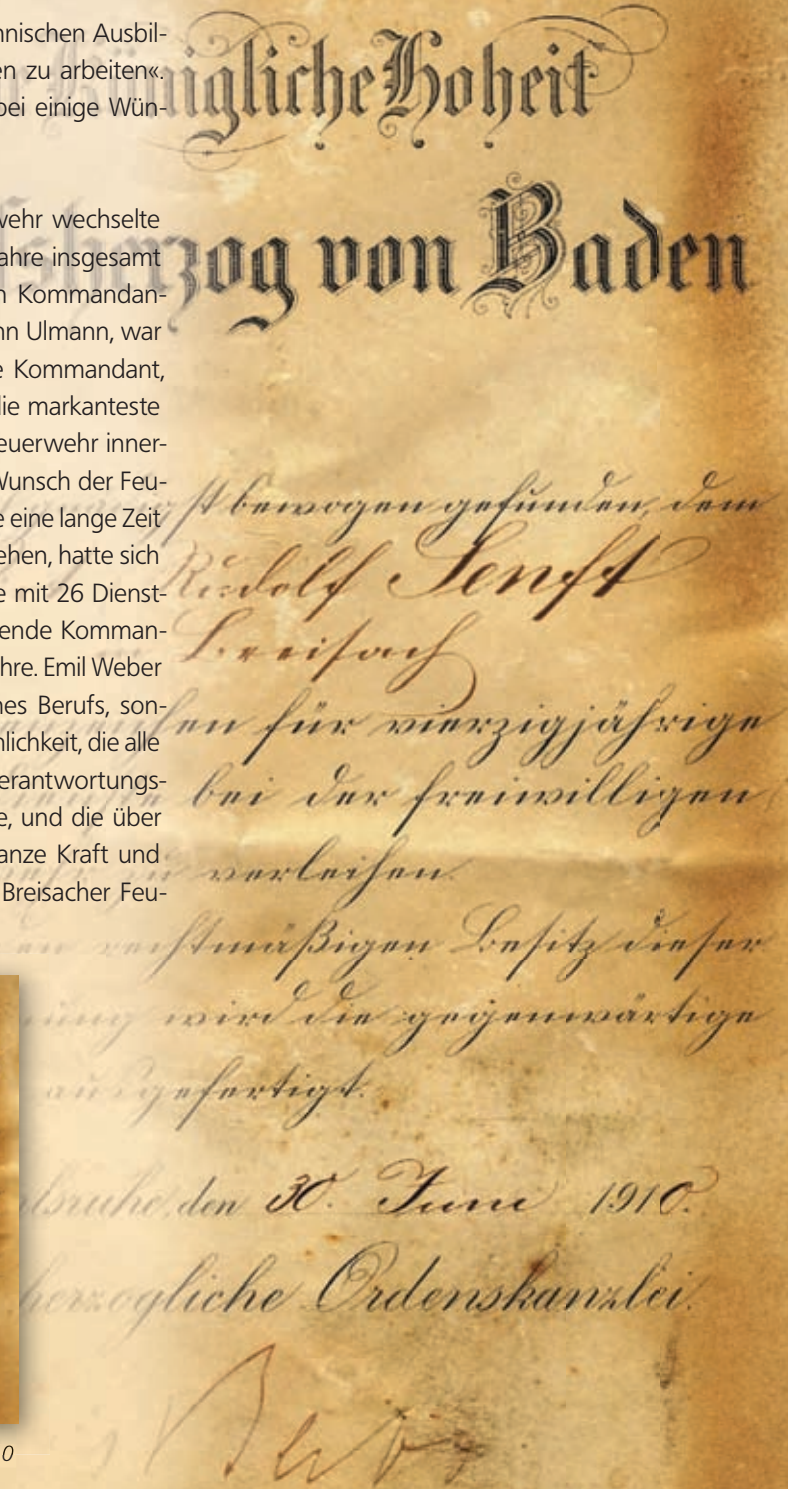 nnischen Ausbil-
en zu arbeiten«.
bei einige Wün-
wehr wechselte
ahre insgesamt
n Kommandan-
nn Ulmann, war
e Kommandant,
die markanteste
euerwehr inner-
Wunsch der Feu-
e eine lange Zeit
ehen, hatte sich
e mit 26 Dienst-
ende Komman-
hre. Emil Weber
nes Berufs, son-
nlichkeit, die alle
erantwortungs-
e, und die über
anze Kraft und
Breisacher Feu-
0
Königliche Hoheit
sherzog von Baden
st bewogen gefunden, dem
Rudolf Senft
Breisach
en für vierzigjährige
bei der freiwilligen
verleihen.
en rechtmäßigen Besitz dieser
nung wird die gegenwärtige
ausgefertigt.
lsruhe, den 30. Juni 1910.
herzogliche Ordenskanzlei.